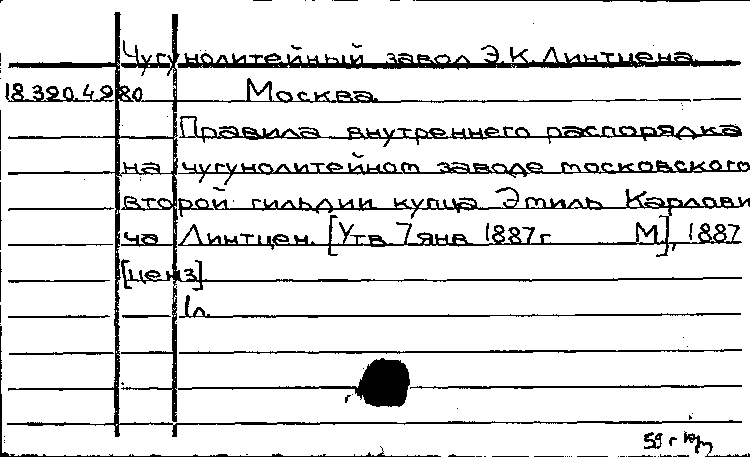 Чугунолитейный завод Э.К. Линтцена
18.320.4.280 Москва.
Правила внутреннего распорядка
на чугунолитейном заводе московского
второй гильдии купца Эмиль Карлови
ча Линтцен. [Утв 7 янв 1887 г М], 1887
[ценз]
1 л.
59 г